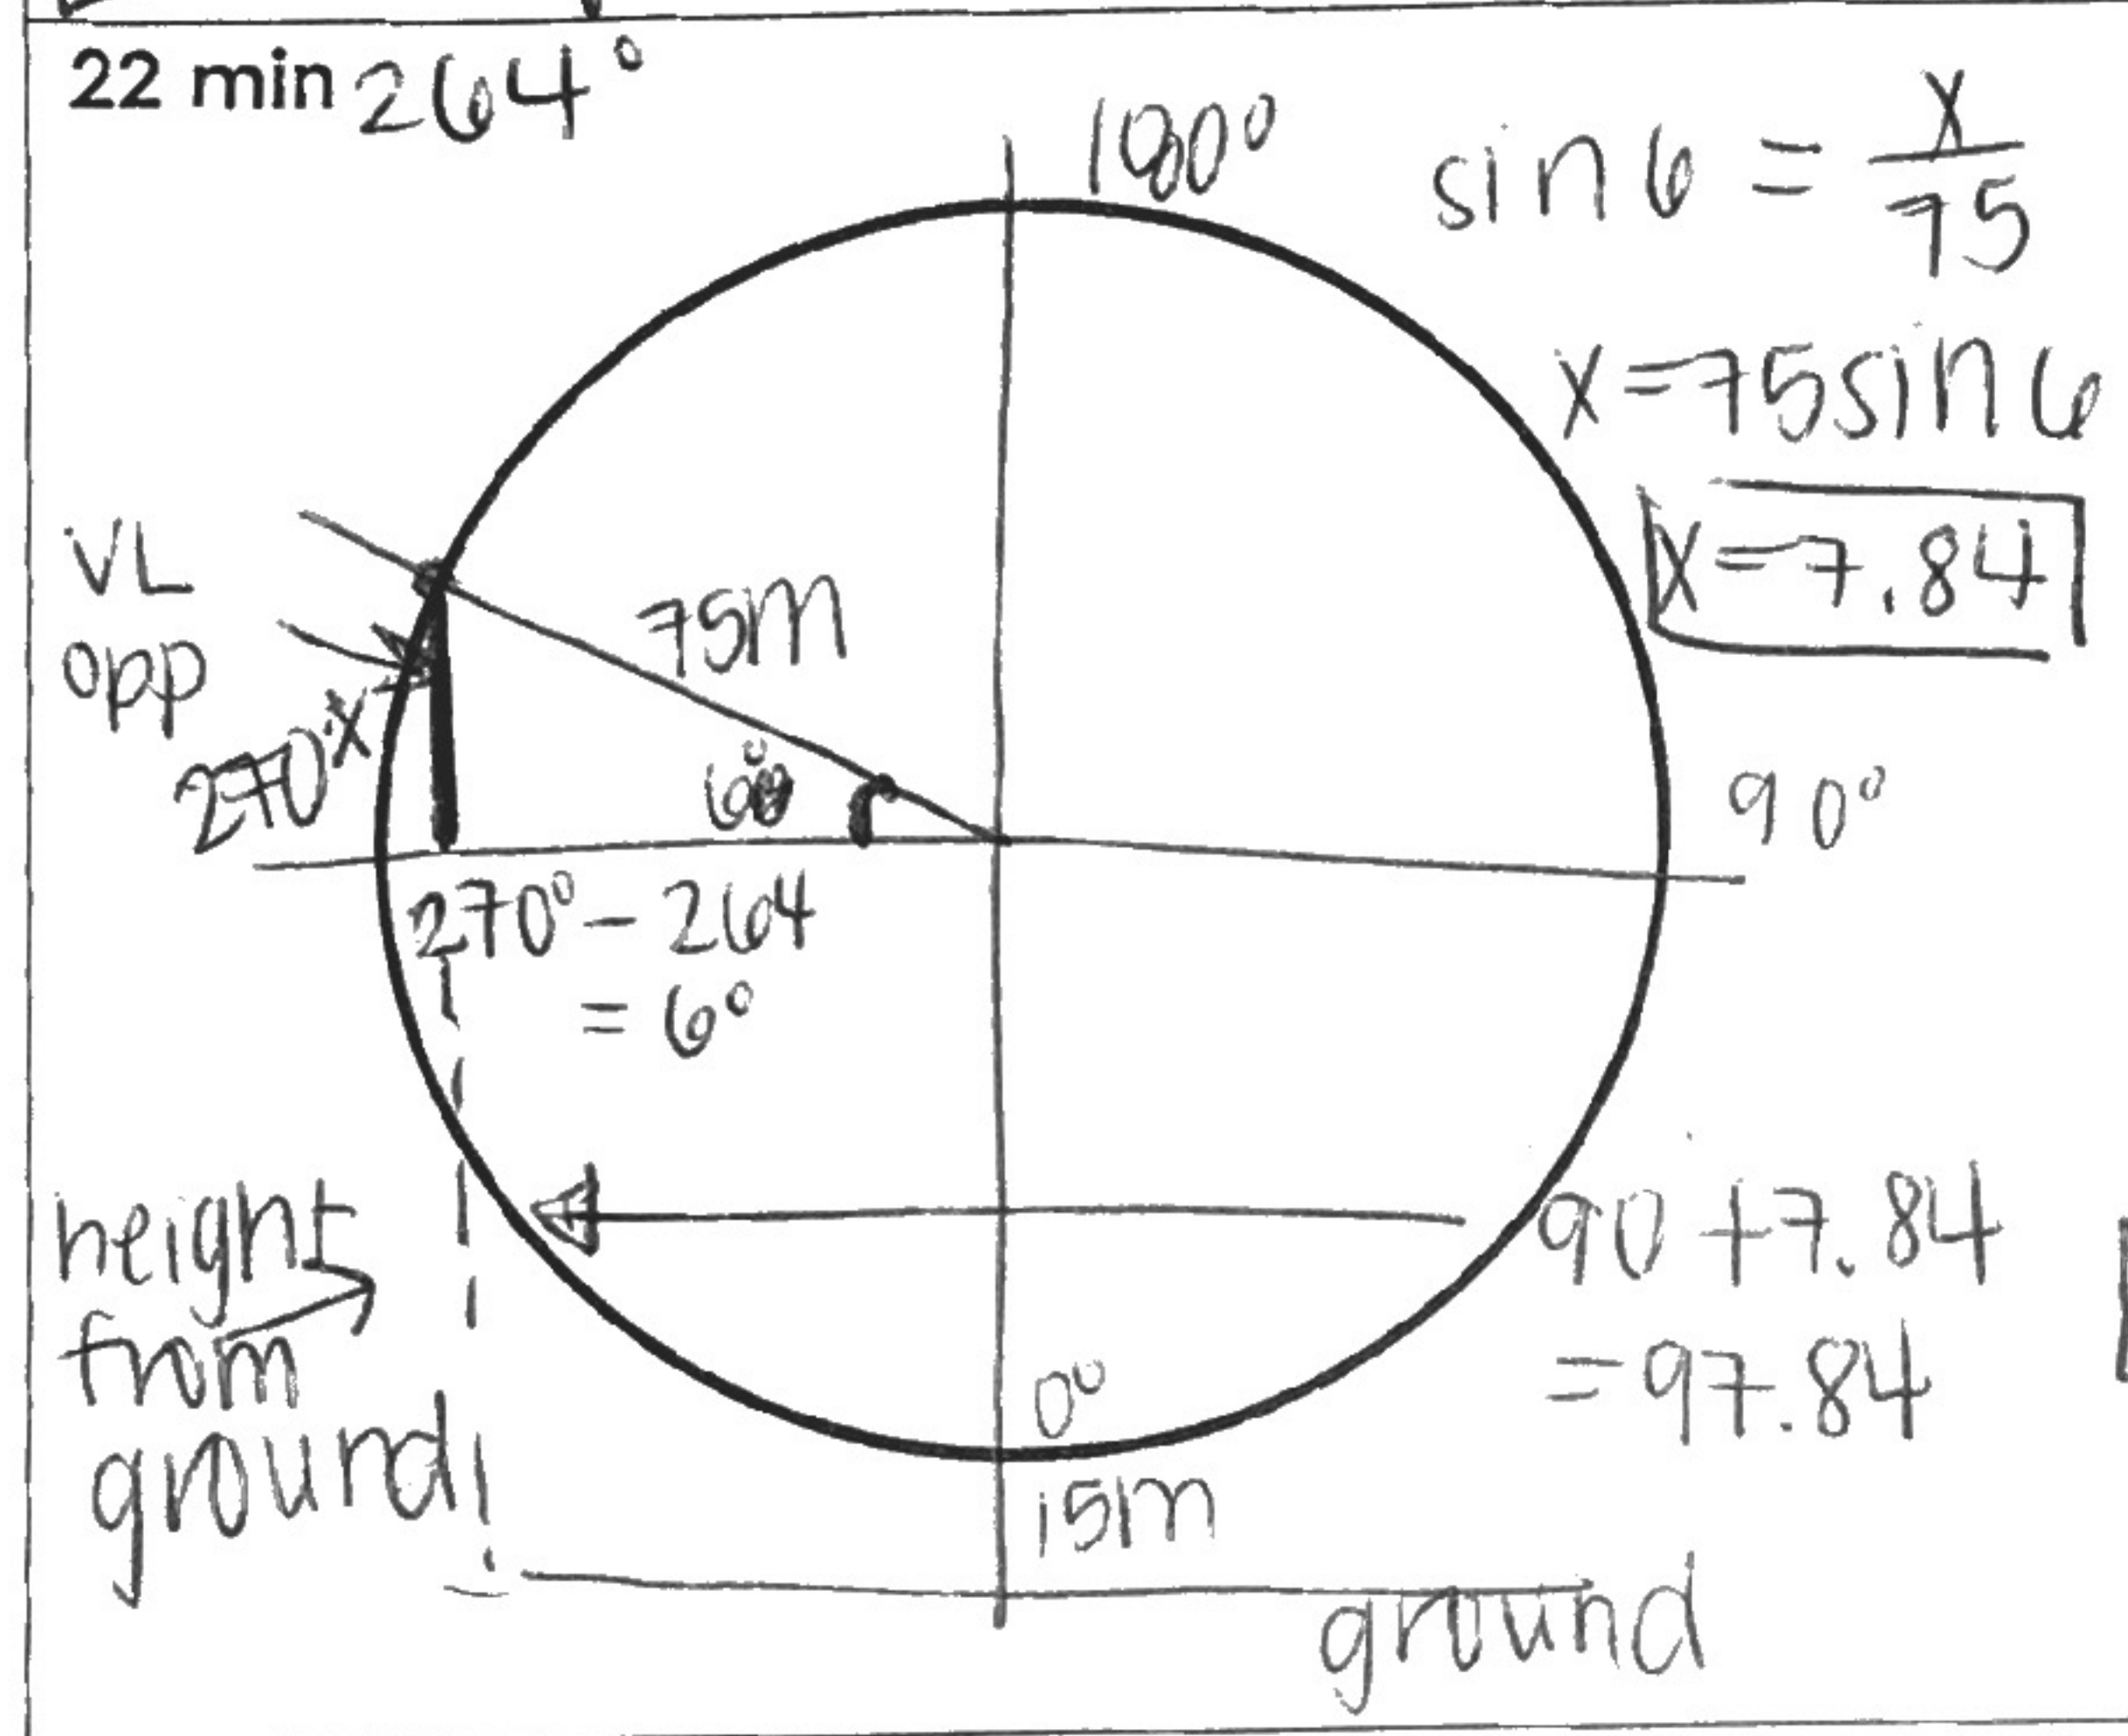 22 min 264°
180°
sin 6 = x/75
x=75sin6
x=7.84
VL
opp
x
270°
75m
6°
90°
270° - 264
= 6°
height
from
ground
90 + 7.84
= 97.84
0°
15m
ground